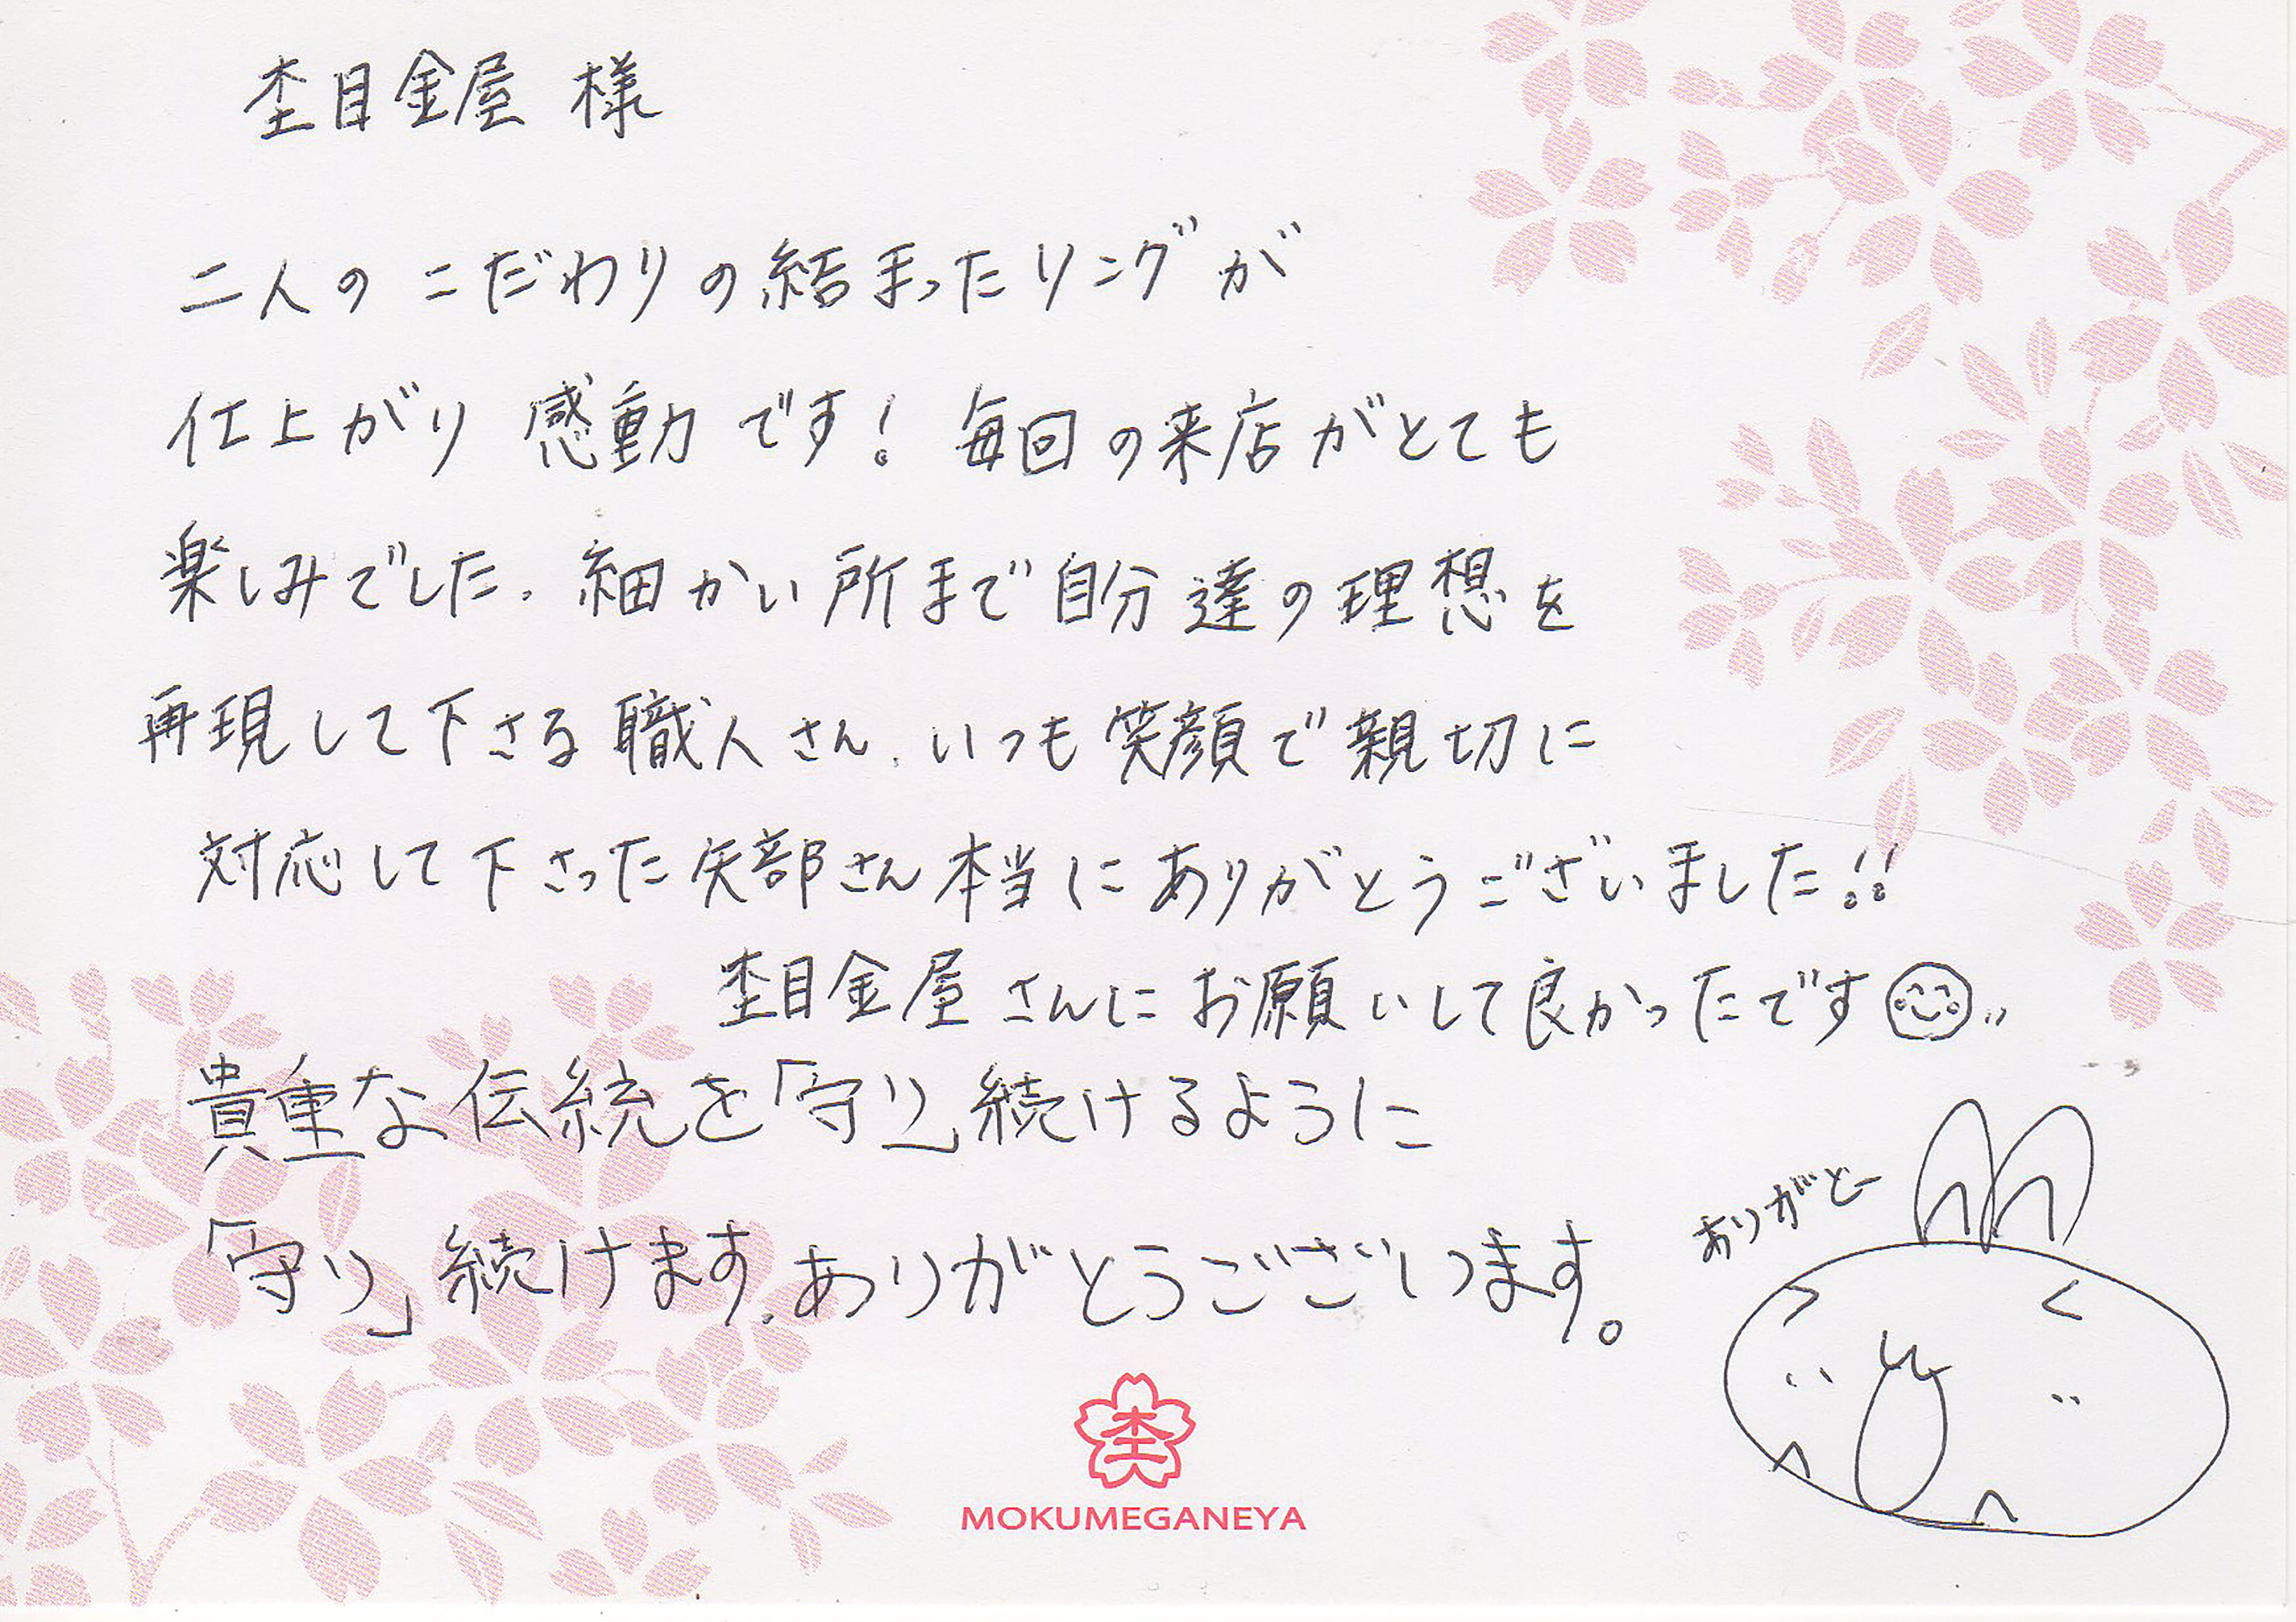 杢目金屋 様
二人の こだわりの結まったリングが
仕上がり 感動 です! 毎回の来店がとても
楽しみでした. 細かい所まで自分達の理想を
再現して下さる職人さん. いつも笑顔で親切に
対応して下さった矢部さん本当にありがとうございました!!
杢目金屋さんにお願いして良かったです
貴重な伝統を「守り」続けるように
「守り」続けます. ありがとうございます。
ありがとー
杢
MOKUMEGANEYA